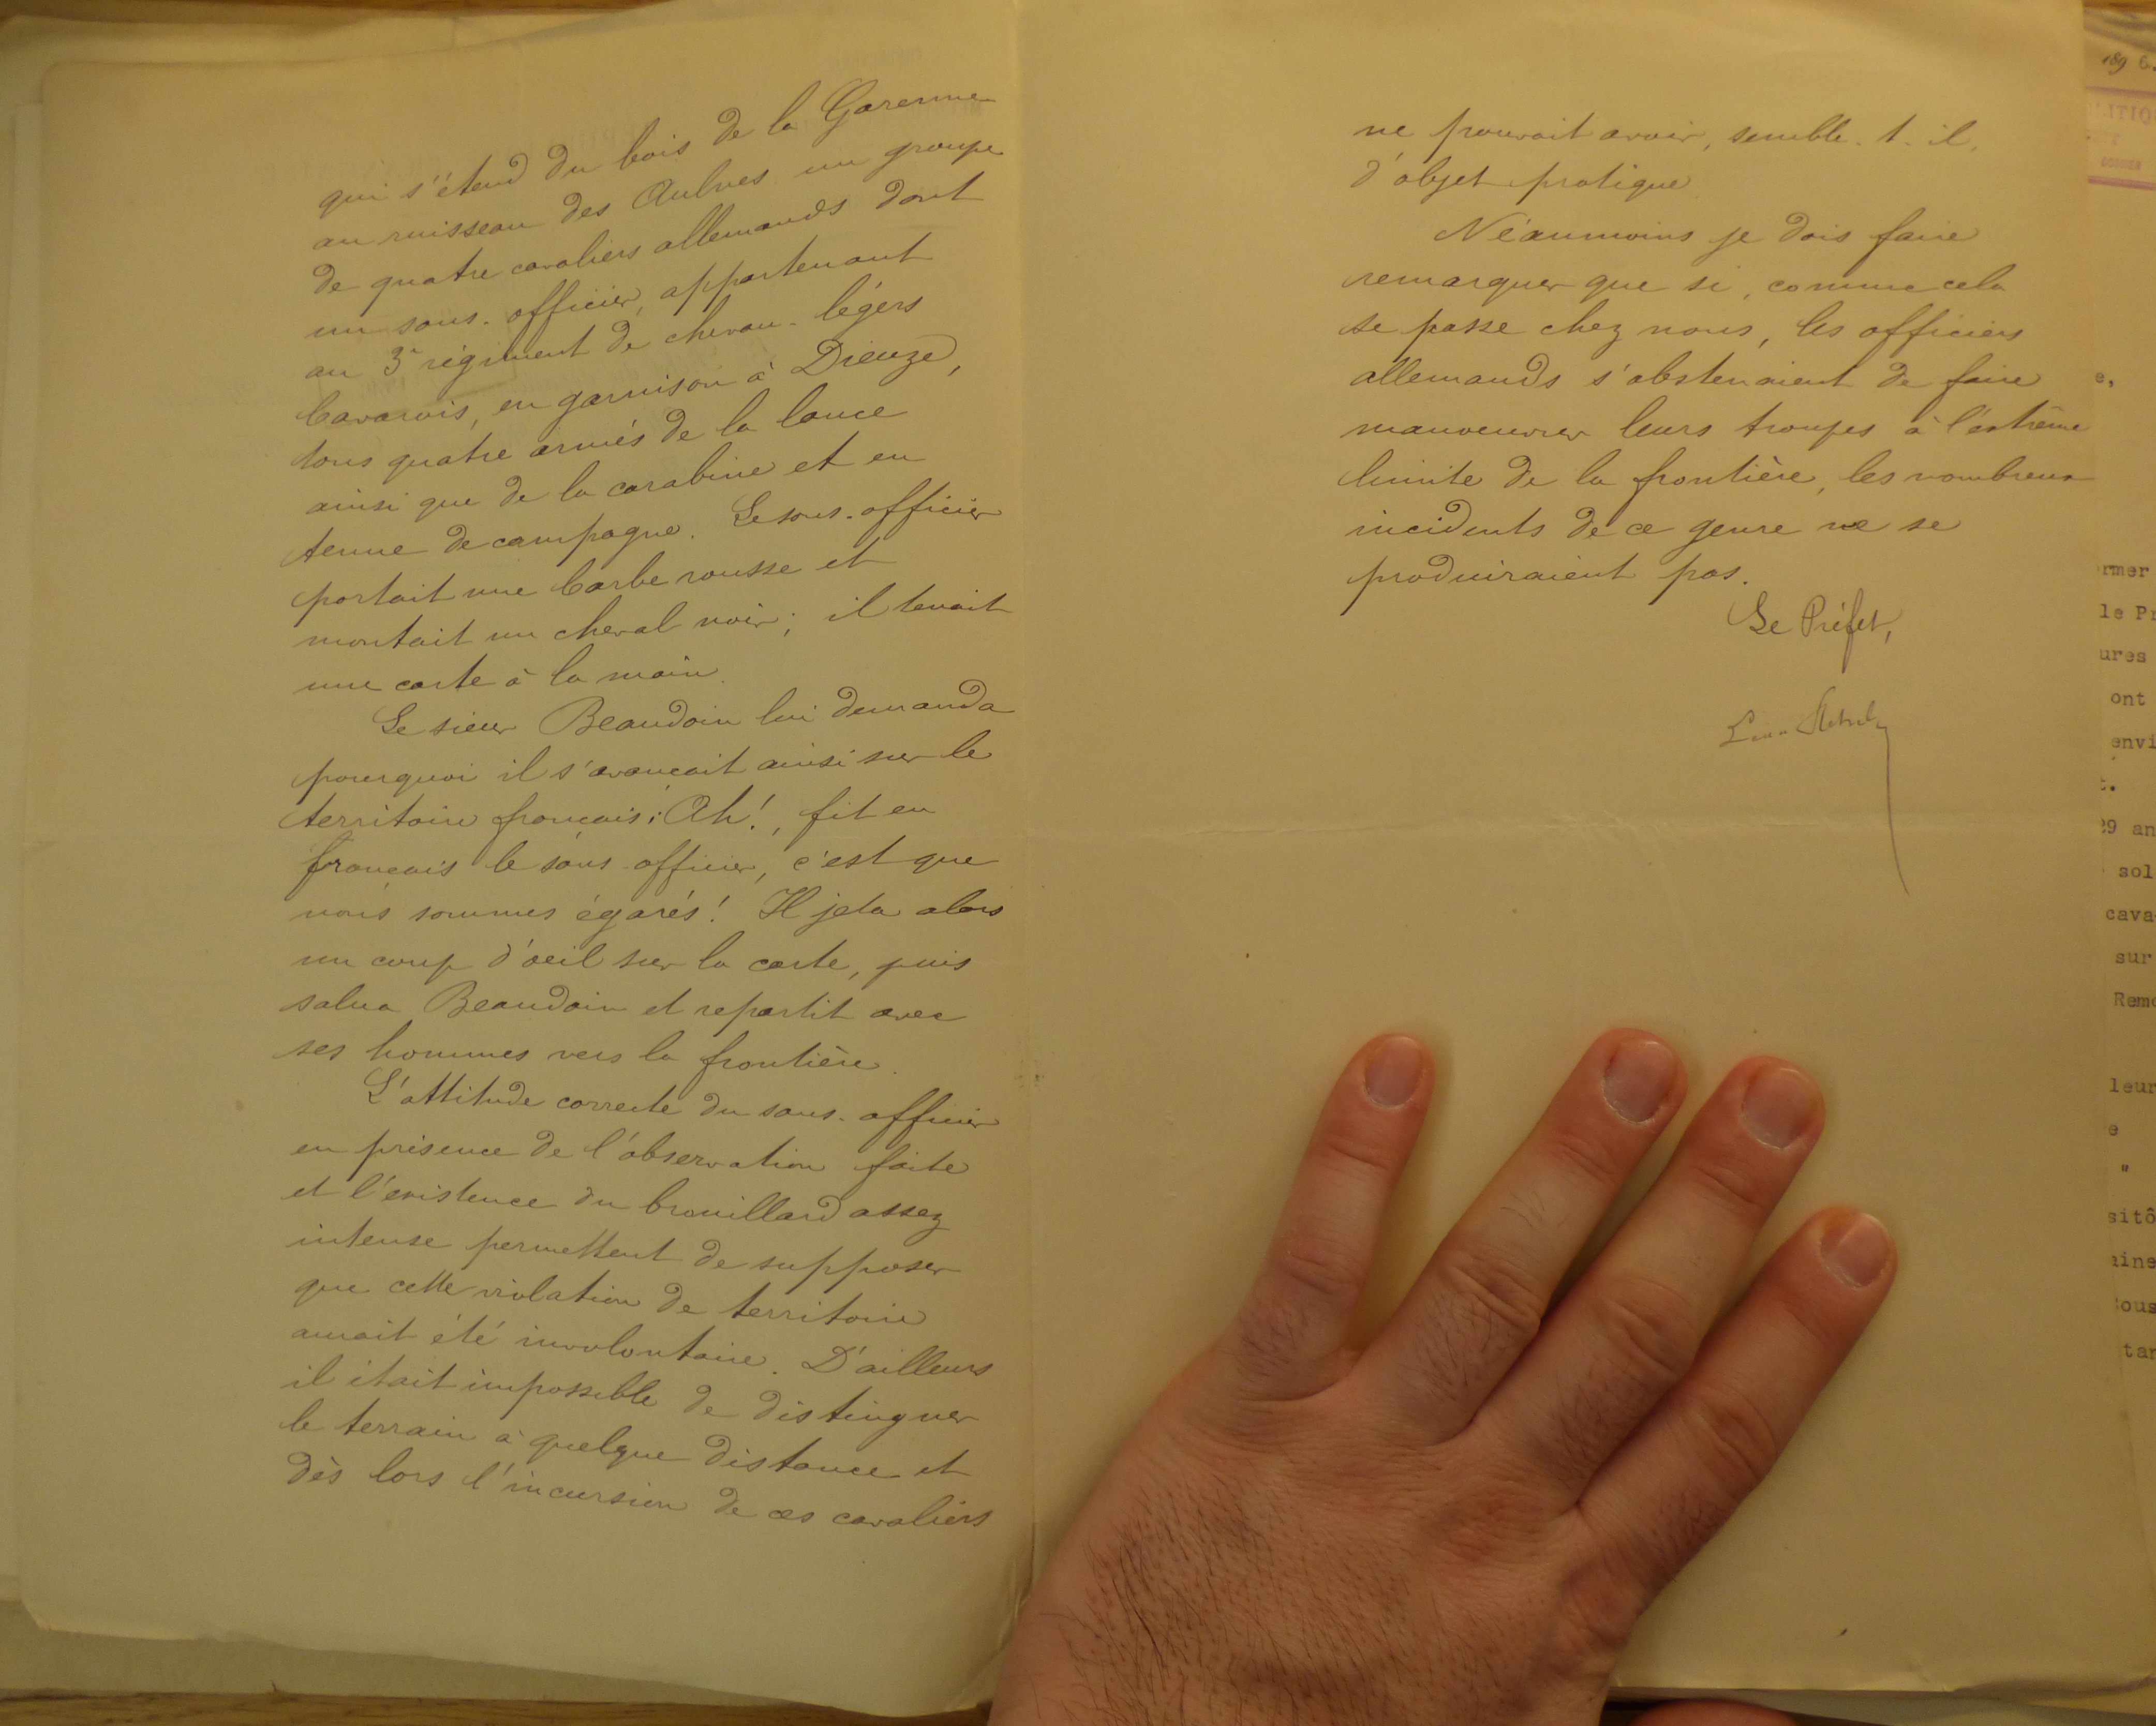 qui s'étend du bois de la Garenne
au ruisseau des Aulnes un groupe
de quatre cavaliers allemands dont
un sous-officier, appartenant
au 3e régiment de chevau-légers
bavarois, en garnison à Dieuze,
tous quatre armés de la lance
ainsi que de la carabine et en
tenue de campagne. Le sous-officier
portait une barbe rousse et
montait un cheval noir; il tenait
une carte à la main.
Le sieur Beaudoin lui demanda
pourquoi il s'avançait ainsi sur le
territoire français: Ah!, fit en
français le sous-officier, c'est que
nous sommes égarés! Il jeta alors
un coup d'oeil sur la carte, puis
salua Beaudoin et repartit avec
ses hommes vers la frontière.
L'attitude correcte du sous-officier
en présence de l'observation faite
et l'existence du brouillard assez
intense permettent de supposer
que cette violation de territoire
aurait été involontaire. D'ailleurs
il était impossible de distinguer
le terrain à quelque distance et
dès lors l'incursion de ces cavaliers
ne pouvait avoir, semble-t-il,
d'objet pratique.
Néaumoins je dois faire
remarquer que si, comme cela
se passe chez nous, les officiers
allemands s'abstenaient de faire
manoeuvrer leurs troupes à l'extrême
limite de la frontière, les nombreux
incidents de ce genre ne se
produiraient pas.
Le Préfet,
189 6.
rmer
le Pr
ures
ont
envi
29 an
sol
cava
sur
Remo
leur
e
"
sitô
aine
ous
tar